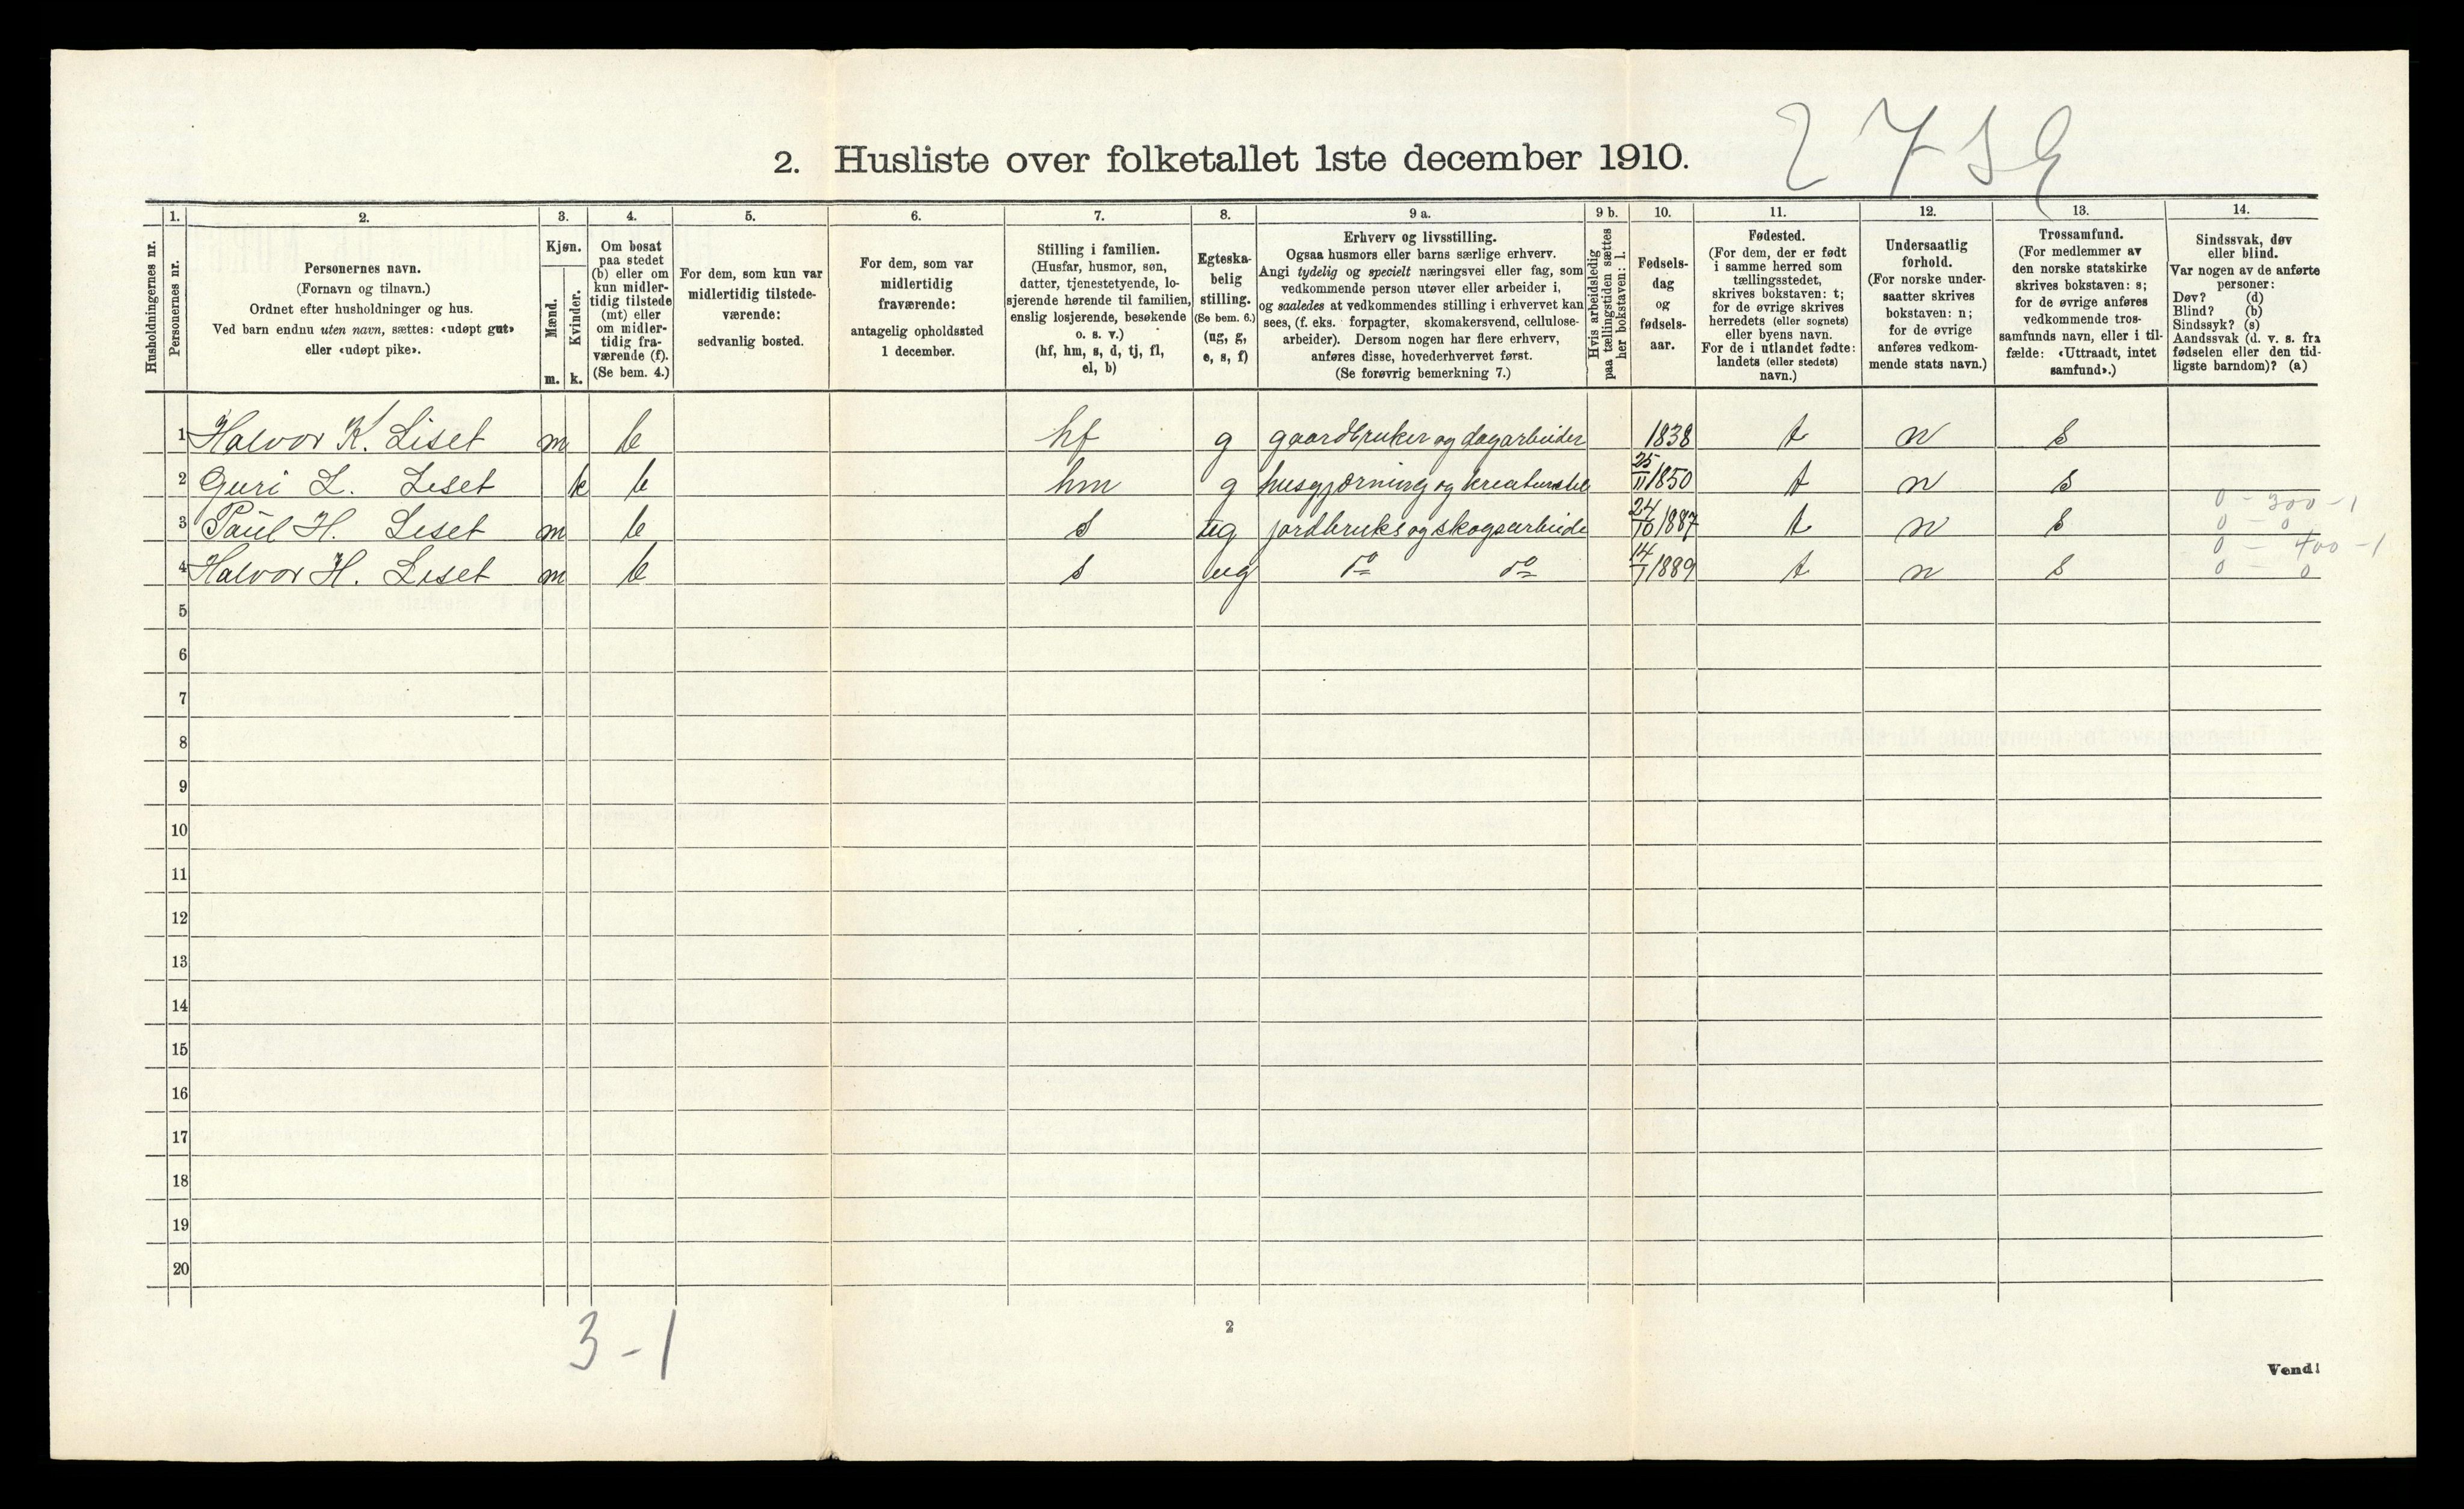 2. Husliste over folketallet 1ste december 1910.
1. 2. 3. 4. 5. 6. 7. 8. 9 a. 9 b. 10. 11. 12. 13. 14.
Husholdningernes nr.
Personernes nr.
Personernes navn.
(Fornavn og tilnavn.)
Ordnet efter husholdninger og hus.
Ved barn endnu uten navn, sættes: «udøpt gut»
eller «udøpt pike».
Kjøn.
Mænd.
Kvinder.
m. k.
Om bosat
paa stedet
(b) eller om
kun midler-
tidig tilstede
(mt) eller
om midler-
tidig fra-
værende (f).
(Se bem. 4.)
For dem, som kun var
midlertidig tilstede-
værende:
sedvanlig bosted.
For dem, som var
midlertidig
fraværende:
antagelig opholdssted
1 december.
Stilling i familien.
(Husfar, husmor, søn,
datter, tjenestetyende, lo-
sjerende hørende til familien,
enslig losjerende, besøkende
o. s. v.)
(hf, hm, s, d, tj, fl,
el, b)
Egteska-
belig
stilling.
(Se bem. 6.)
(ug, g,
e, s, f)
Erhverv og livsstilling.
Ogsaa husmors eller barns særlige erhverv.
Angi tydelig og specielt næringsvei eller fag, som
vedkommende person utøver eller arbeider i,
og saaledes at vedkommendes stilling i erhvervet kan
sees, (f. eks. forpagter, skomakersvend, cellulose-
arbeider). Dersom nogen har flere erhverv,
anføres disse, hovederhvervet først.
(Se forøvrig bemerkning 7.)
Hvis arbeidsledig
paa tællingstiden sættes
her bokstaven: l.
Fødsels-
dag
og
fødsels-
aar.
Fødested.
(For dem, der er født
i samme herred som
tællingsstedet,
skrives bokstaven: t;
for de øvrige skrives
herredets (eller sognets)
eller byens navn.
For de i utlandet fødte:
landets (eller stedets)
navn.)
Undersaatlig
forhold.
(For norske under-
saatter skrives
bokstaven: n;
for de øvrige
anføres vedkom-
mende stats navn.)
Trossamfund.
(For medlemmer av
den norske statskirke
skrives bokstaven: s;
for de øvrige anføres
vedkommende tros-
samfunds navn, eller i til-
fælde: «Uttraadt, intet
samfund».)
Sindssvak, døv
eller blind.
Var nogen av de anførte
personer:
Døv? (d)
Blind? (b)
Sindssyk? (s)
Aandssvak (d. v. s. fra
fødselen eller den tid-
ligste barndom)? (a)
1 Halvor K. Liset m b hf g gaardbruker og dagarbeider 1838 t n s
2 Guri L. Liset k b hm g husgjerning og kreaturstel 25/11 1850 t n s
0 - 300 - 1
3 Paul H. Liset m b s ug jordbruks og skogsarbeide 24/10 1887 t n s 0 - 0
0 - 400 - 1
4 Halvor H. Liset m b s ug do do 14/1 1889 t n s 0 0
5
6
7
8
9
10
11
12
13
14
15
16
17
18
19
20
3 - 1
2
Vend!